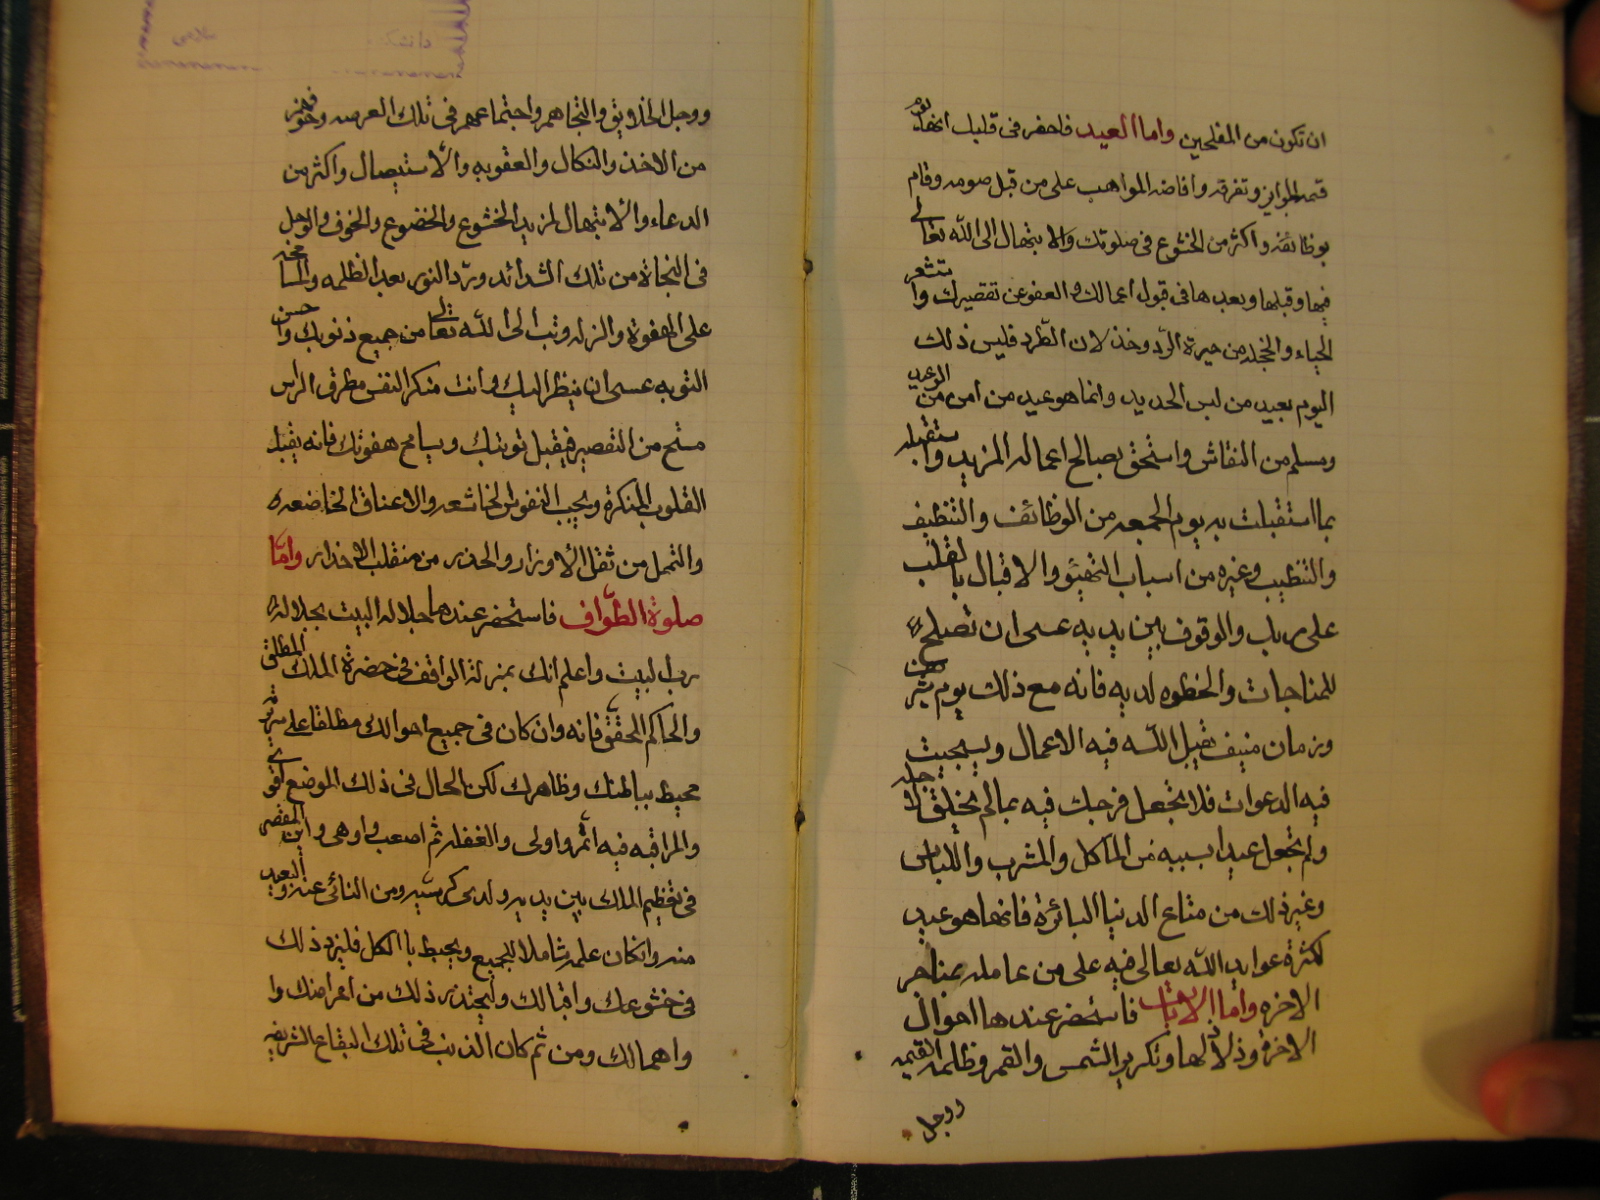 ان تكون من المفلحين واما العيد فاحضر فى قلبك انها يوم
قسمة الجوايز وتفرقه وافاضه المواهب على من قبل صومه وقام
بوظائفه واكثر من الخشوع فى صلوتك والابتهال الى الله تعالى
فيها وقبلها وبعدها فى قبول اعمالك والعفو عن تقصيرك واستشعر
الحياء والخجلة من حيرة الرد وخذلان الطرد فليس ذلك
اليوم بعيد من لبس الجديد وانما هو عيد من امن من الوعيد
وسلم من النقاش واستحق بصالح اعماله المزيد واستقبله
بما استقبلت به يوم الجمعه من الوظائف والتنظيف
والتطيب وغيره من اسباب التهيئو والاقبال بالقلب
على ربك والوقوف بين يديه عسى ان تصلح
للمناجات والحظوه لديه فانه مع ذلك يوم شريف
وزمان منيف تقبل الله فيه الاعمال ويستجيب
فيه الدعوات فلا تجعل فرحك فيه بما لم يخلق لاجله
ولم تجعل عيدا بسببه من الماكل والمشرب واللباس
وغير ذلك من متاع الدنيا البائرة فانما هو عيد
لكثرة عوايد الله تعالى فيه على من عامله بمتاجر
الاخره واما الايات فاستحضر عندها احوال
الاخرة وزلازلها وتكوير الشمس والقمر وظلمة القيمه
ووجل
ووجل الخلايق والتجاهم واجتماعهم فى تلك العرصه وخوفهم
من الاخذ والنكال والعقوبه والاستيصال واكثر من
الدعاء والابتهال لمزيد الخشوع والخضوع والخوف والوجل
فى النجاة من تلك الشدائد ورد النور بعد الظلمه والمسامحه
على الهفوة والزله وتب الى الله تعالى من جميع ذنوبك واحسن
التوبه عسى ان ينظر اليك وانت منكر النفس مطرق الراس
مستح من التقصير فيقبل توبتك ويسامح هفوتك فانه يقبل
القلوب المنكرة ويحب النفوس الخاشعه والاعناق الخاضعه
والتململ من ثقل الاوزار والحذر من منقلب الاخدار واما
صلوة الطواف فاستحضر عندها جلاله البيت بجلاله
رب البيت واعلم انك بمنزلة الواقف فى حضرة الملك المطلق
والحاكم المحقق فانه وان كان فى جميع احوالك مطلقا على سريرتك
محيط بباطنك وظاهرك لكن الحال فى ذلك الموضع اقوى
والمراقبه فيه اتم واولى والغفلة ثم اصعب واوهى واين المقصر
فى تعظيم الملك بين يديه ولدى كرسيه ومن النائى عنه والبعيد
منه وان كان علمه شاملا للجميع ويحيط بالكل فليزد ذلك
فى خشوعك واقبالك وليحتذر ذلك من اعراضك وا
واهمالك ومن ثم كان الذنب فى تلك البقاع الشريفه